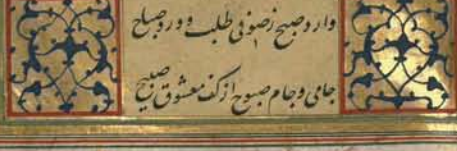 وارد صبح ز صوفی طلب و ورد صباح
جامی و جام صبوح از کف معشوق صبیح